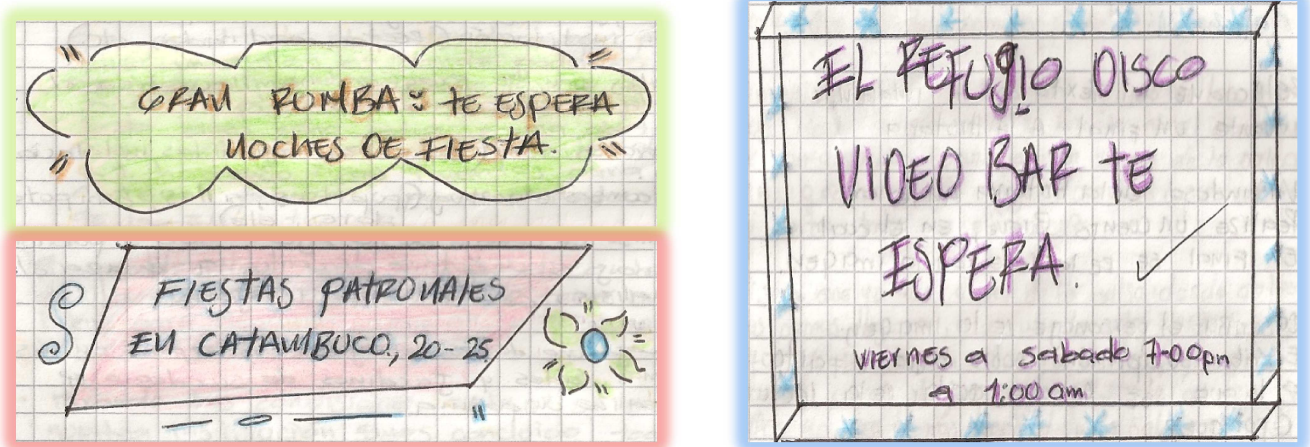 GRAN RUMBA: TE ESPERA
NOCHES DE FIESTA.
FIESTAS PATRONALES
EN CATAMBUCO, 20-25
EL REFUGIO DISCO
VIDEO BAR TE
ESPERA.
VIERNES a sabado 7:00pm
a 1:00am